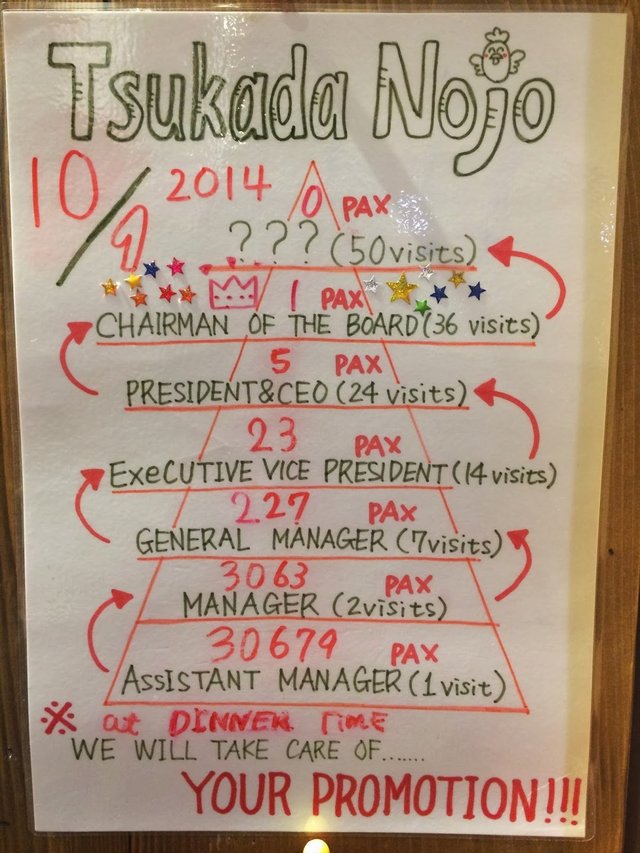 Tsukada Nojo
10/9 2014
0 PAX
??? (50 visits)
1 PAX
CHAIRMAN OF THE BOARD (36 visits)
5 PAX
PRESIDENT&CEO (24 visits)
23 PAX
ExeCUTIVE VICE PRESIDENT (14 visits)
227 PAX
GENERAL MANAGER (7visits)
3063 PAX
MANAGER (2visits)
30679 PAX
ASSISTANT MANAGER (1 visit)
※ at DINNER TIME
WE WILL TAKE CARE OF......
YOUR PROMOTION!!!